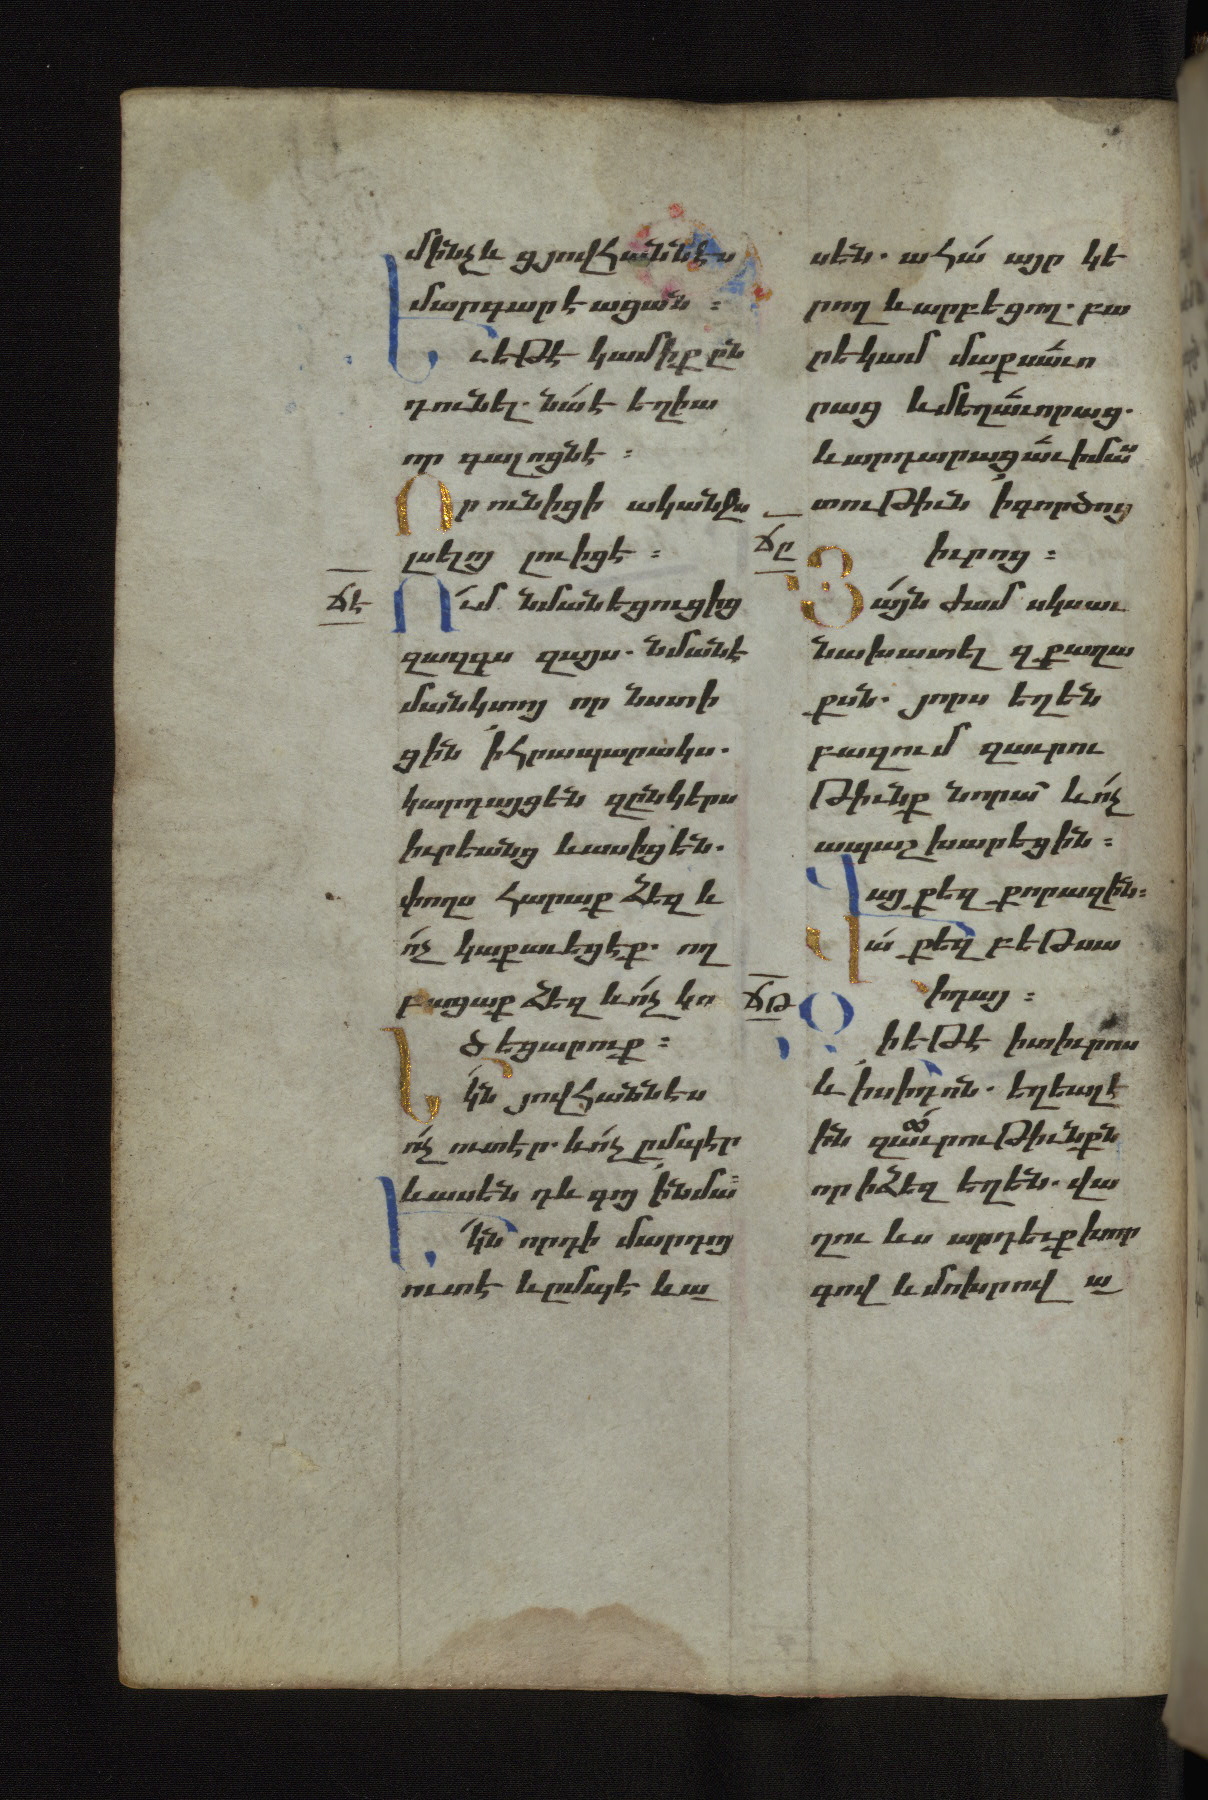 մինչև ցյովհաննէս
մարգարէացան ։
Եւեթէ կամիք ըն
դունել. նա՛ է եղիա
որ գալոցնէ ։
Որ ունիցի ականջս
լսելոյ լուիցէ ։
ճէ
Ո՛ւմ նմանեցուցից
զազգս զայս. նմանէ
մանկտոյ որ նստի
ցին ի՛հրապարակս.
կարդայցեն զընկերս
իւրեանց և ասիցեն.
փողս հարաք ձեզ և
ո՛չ կաքաւեցէք. ող
բացաք ձեզ և ո՛չ կո
ծեցարուք ։
Ե՛կն յովհաննէս
ո՛չ ուտէր. և ո՛չ ըմպէր
և ասեն դև գոյ ի՛նմա ։
Ե՛կն որդի մարդոյ
ուտէ և ըմպէ և ա
սեն. ահա՛ այր կե
րող և արբեցող. բա
րեկամ մաքսաւո
րաց և մեղաւորաց.
և արդարացաւ իմաս
տութիւն ի՛գործոց
իւրոց ։
ճը
Յա՛յնժամ սկսաւ
նախատել զքաղա
քսն. յորս եղեն
բազում զաւրու
թիւնք նորա՝ և ո՛չ
ապաշխարեցին ։
Վայ քեզ քորազին ։
Վա՛ քեզ բեթսա
իդայ ։
ճթ
Զի եթէ ի տիւրոս
և ի՛սիդոն. եղեալ է
ին զաւրութիւնքն
որ ի ձեզ եղեն. վա
ղու ևս արդեւք խոր
գով և մոխրով ա